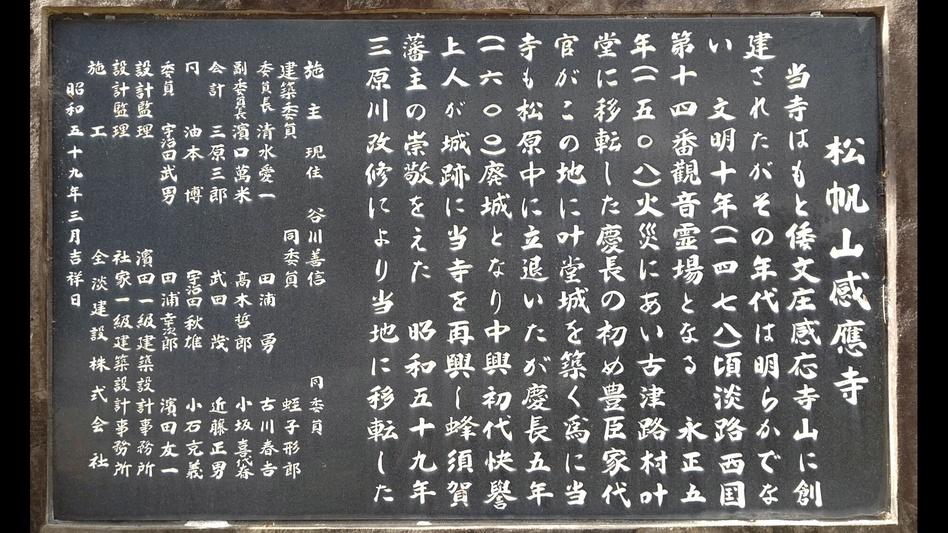 松帆山感應寺
当寺はもと倭文庄感応寺山に創
建されたがその年代は明らかでな
い 文明十年(一四七八)頃淡路西国
第十四番観音霊場となる 永正五
年(一五〇八)火災にあい古津路村叶
堂に移転した慶長の初め豊臣家代
官がこの地に叶堂城を築く為に当
寺も松原中に立退いたが慶長五年
(一六〇〇)廃城となり中興初代快誉
上人が城跡に当寺を再興し蜂須賀
藩主の崇敬をえた 昭和五十九年
三原川改修により当地に移転した
施主 現住 谷川善信
建築委員 同委員 同委員
委員長 清水愛一 田浦 勇 蛭子形郎
副委員長 濱口萬米 高木哲郎 古川春吉
会計 三原三郎 武田 茂 小坂喜代春
〃 油本 博 宇治田秋雄 近藤正男
委員 宇治田武男 田浦幸次郎 小石克義
濱田友一
設計監理 濱田一級建築設計事務所
設計監理 社家一級建築設計事務所
施工 全淡建設株式会社
昭和五十九年三月吉祥日